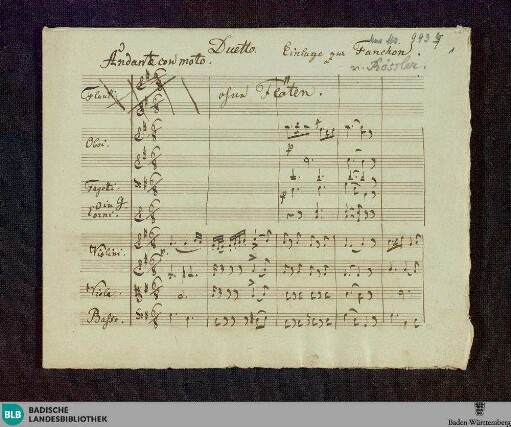 Duetto. Einlage zur Fanchon.
Andante con moto. v. Rössler.
Flauti ohne Flöten.
Oboi.
Fagotti.
Corni. in G
Violini.
Viola.
Basso.
BLB BADISCHE
LANDESBIBLIOTHEK
Baden-Württemberg